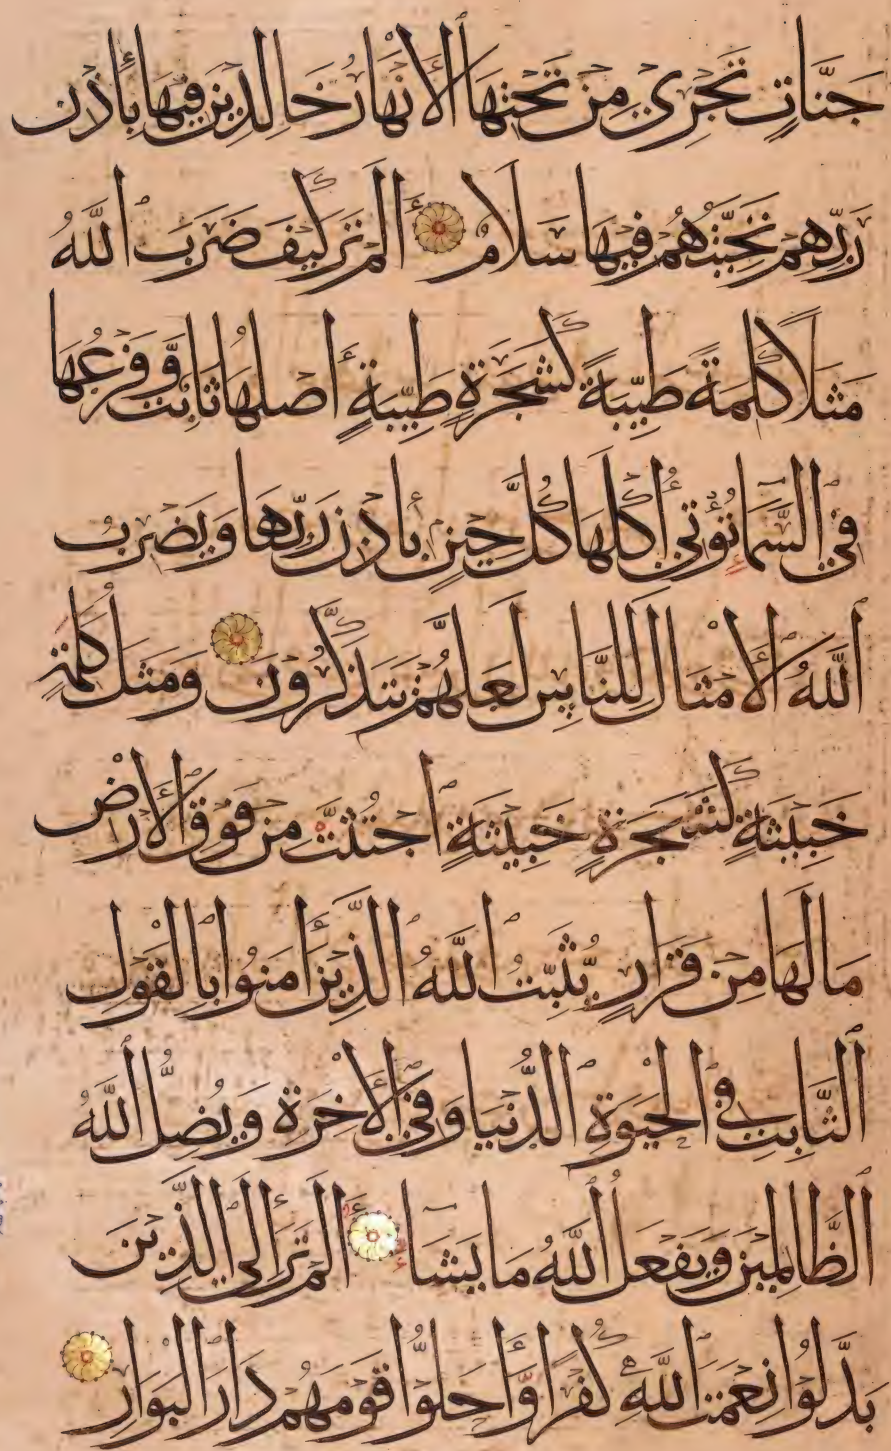 جَنَّاتٍ تَجْرِي مِنْ تَحْتِهَا الْأَنْهَارُ خَالِدِينَ فِيهَا بِأِذْنِ
رَبِّهِمْ تَحِيَّتُهُمْ فِيهَا سَلَامٌ أَلَمْ تَرَ كَيْفَ ضَرَبَ اللَّهُ
مَثَلًا كَلِمَةً طَيِّبَةً كَشَجَرَةٍ طَيِّبَةٍ أَصْلُهَا ثَابِتٌ وَّفَرْعُهَا
فِي السَّمَاءِ تُؤْتِي أُكُلَهَا كُلَّ حِينٍ بِأِذْنِ رَبِّهَا وَيَضْرِبُ
اللَّهُ الْأَمْثَالَ لِلنَّاسِ لَعَلَّهُمْ يَتَذَكَّرُونَ وَمَثَلُ كَلِمَةٍ
خَبِيثَةٍ كَشَجَرَةٍ خَبِيثَةٍ اجْتُثَّتْ مِنْ فَوْقِ الْأَرْضِ
مَا لَهَا مِنْ قَرَارٍ يُّثَبِّتُ اللَّهُ الَّذِينَ آمَنُوا بِالْقَوْلِ
الثَّابِتِ فِي الْحَيَوةِ الدُّنْيَا وَفِي الْآخِرَةِ وَيُضِلُّ اللَّهُ
الظَّالِمِينَ وَيَفْعَلُ اللَّهُ مَا يَشَاءُ أَلَمْ تَرَ إِلَى الَّذِينَ
بَدَّلُوا نِعْمَتَ اللَّهِ كُفْرًا وَّأَحَلُّوا قَوْمَهُمْ دَارَ الْبَوَارِ